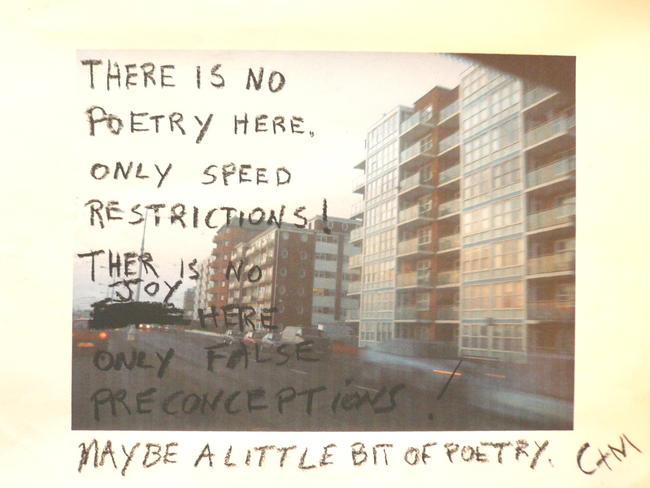 THERE IS NO
POETRY HERE.
ONLY SPEED
RESTRICTIONS!
THER IS NO
JOY
HERE
ONLY FALSE
PRECONCEPTIONS!
MAYBE A LITTLE BIT OF POETRY. C+M